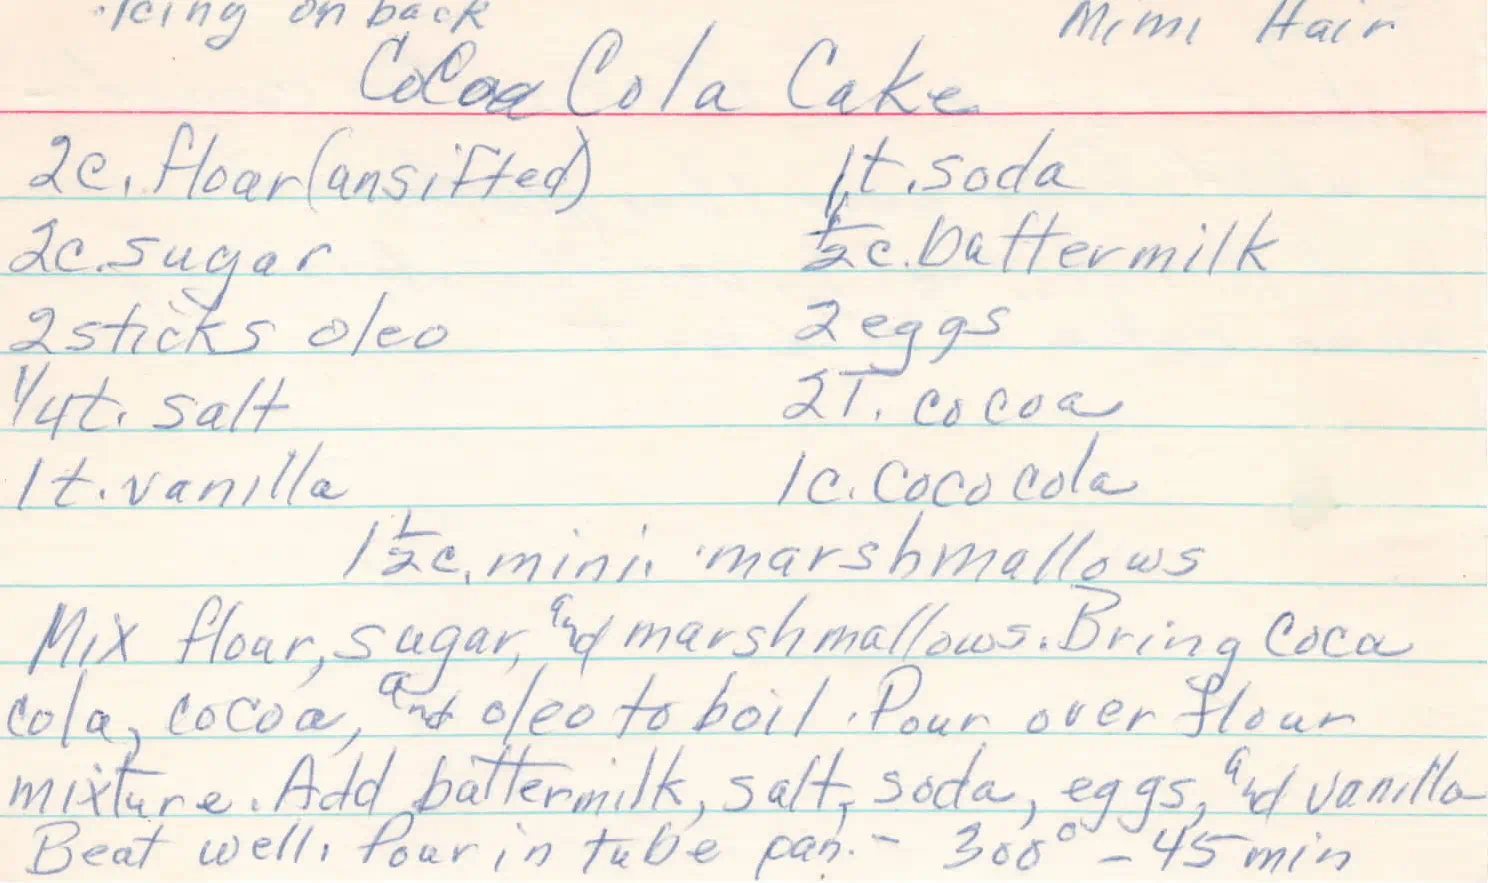 Icing on back Mimi Hair
Cocoa Cola Cake
2c. flour (unsifted) 1t. soda
2c. sugar 1/2 c. buttermilk
2 sticks oleo 2 eggs
1/4 t. salt 2T. cocoa
1 t. vanilla 1c. Coco cola
1 1/2 c. mini. marshmallows
Mix flour, sugar, and marshmallows. Bring Coca
cola, cocoa, and oleo to boil. Pour over flour
mixture. Add buttermilk, salt, soda, eggs, and vanilla
Beat well. Pour in tube pan. - 300° - 45 min